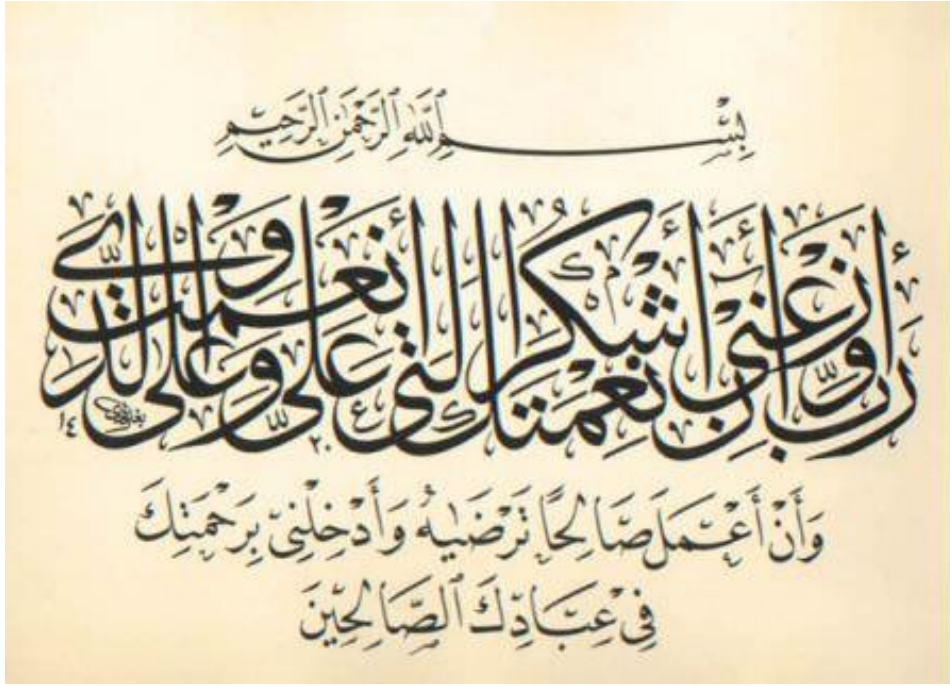 بِسْمِ ٱللَّهِ ٱلرَّحْمَٰنِ ٱلرَّحِيمِ
رَبِّ أَوْزِعْنِي أَنْ أَشْكُرَ نِعْمَتَكَ الَّتِي أَنْعَمْتَ عَلَيَّ وَعَلَىٰ وَالِدَيَّ
وَأَنْ أَعْمَلَ صَالِحًا تَرْضَيٰهُ وَأَدْخِلْنِي بِرَحْمَتِكَ
فِي عِبَادِكَ ٱلصَّالِحِينَ